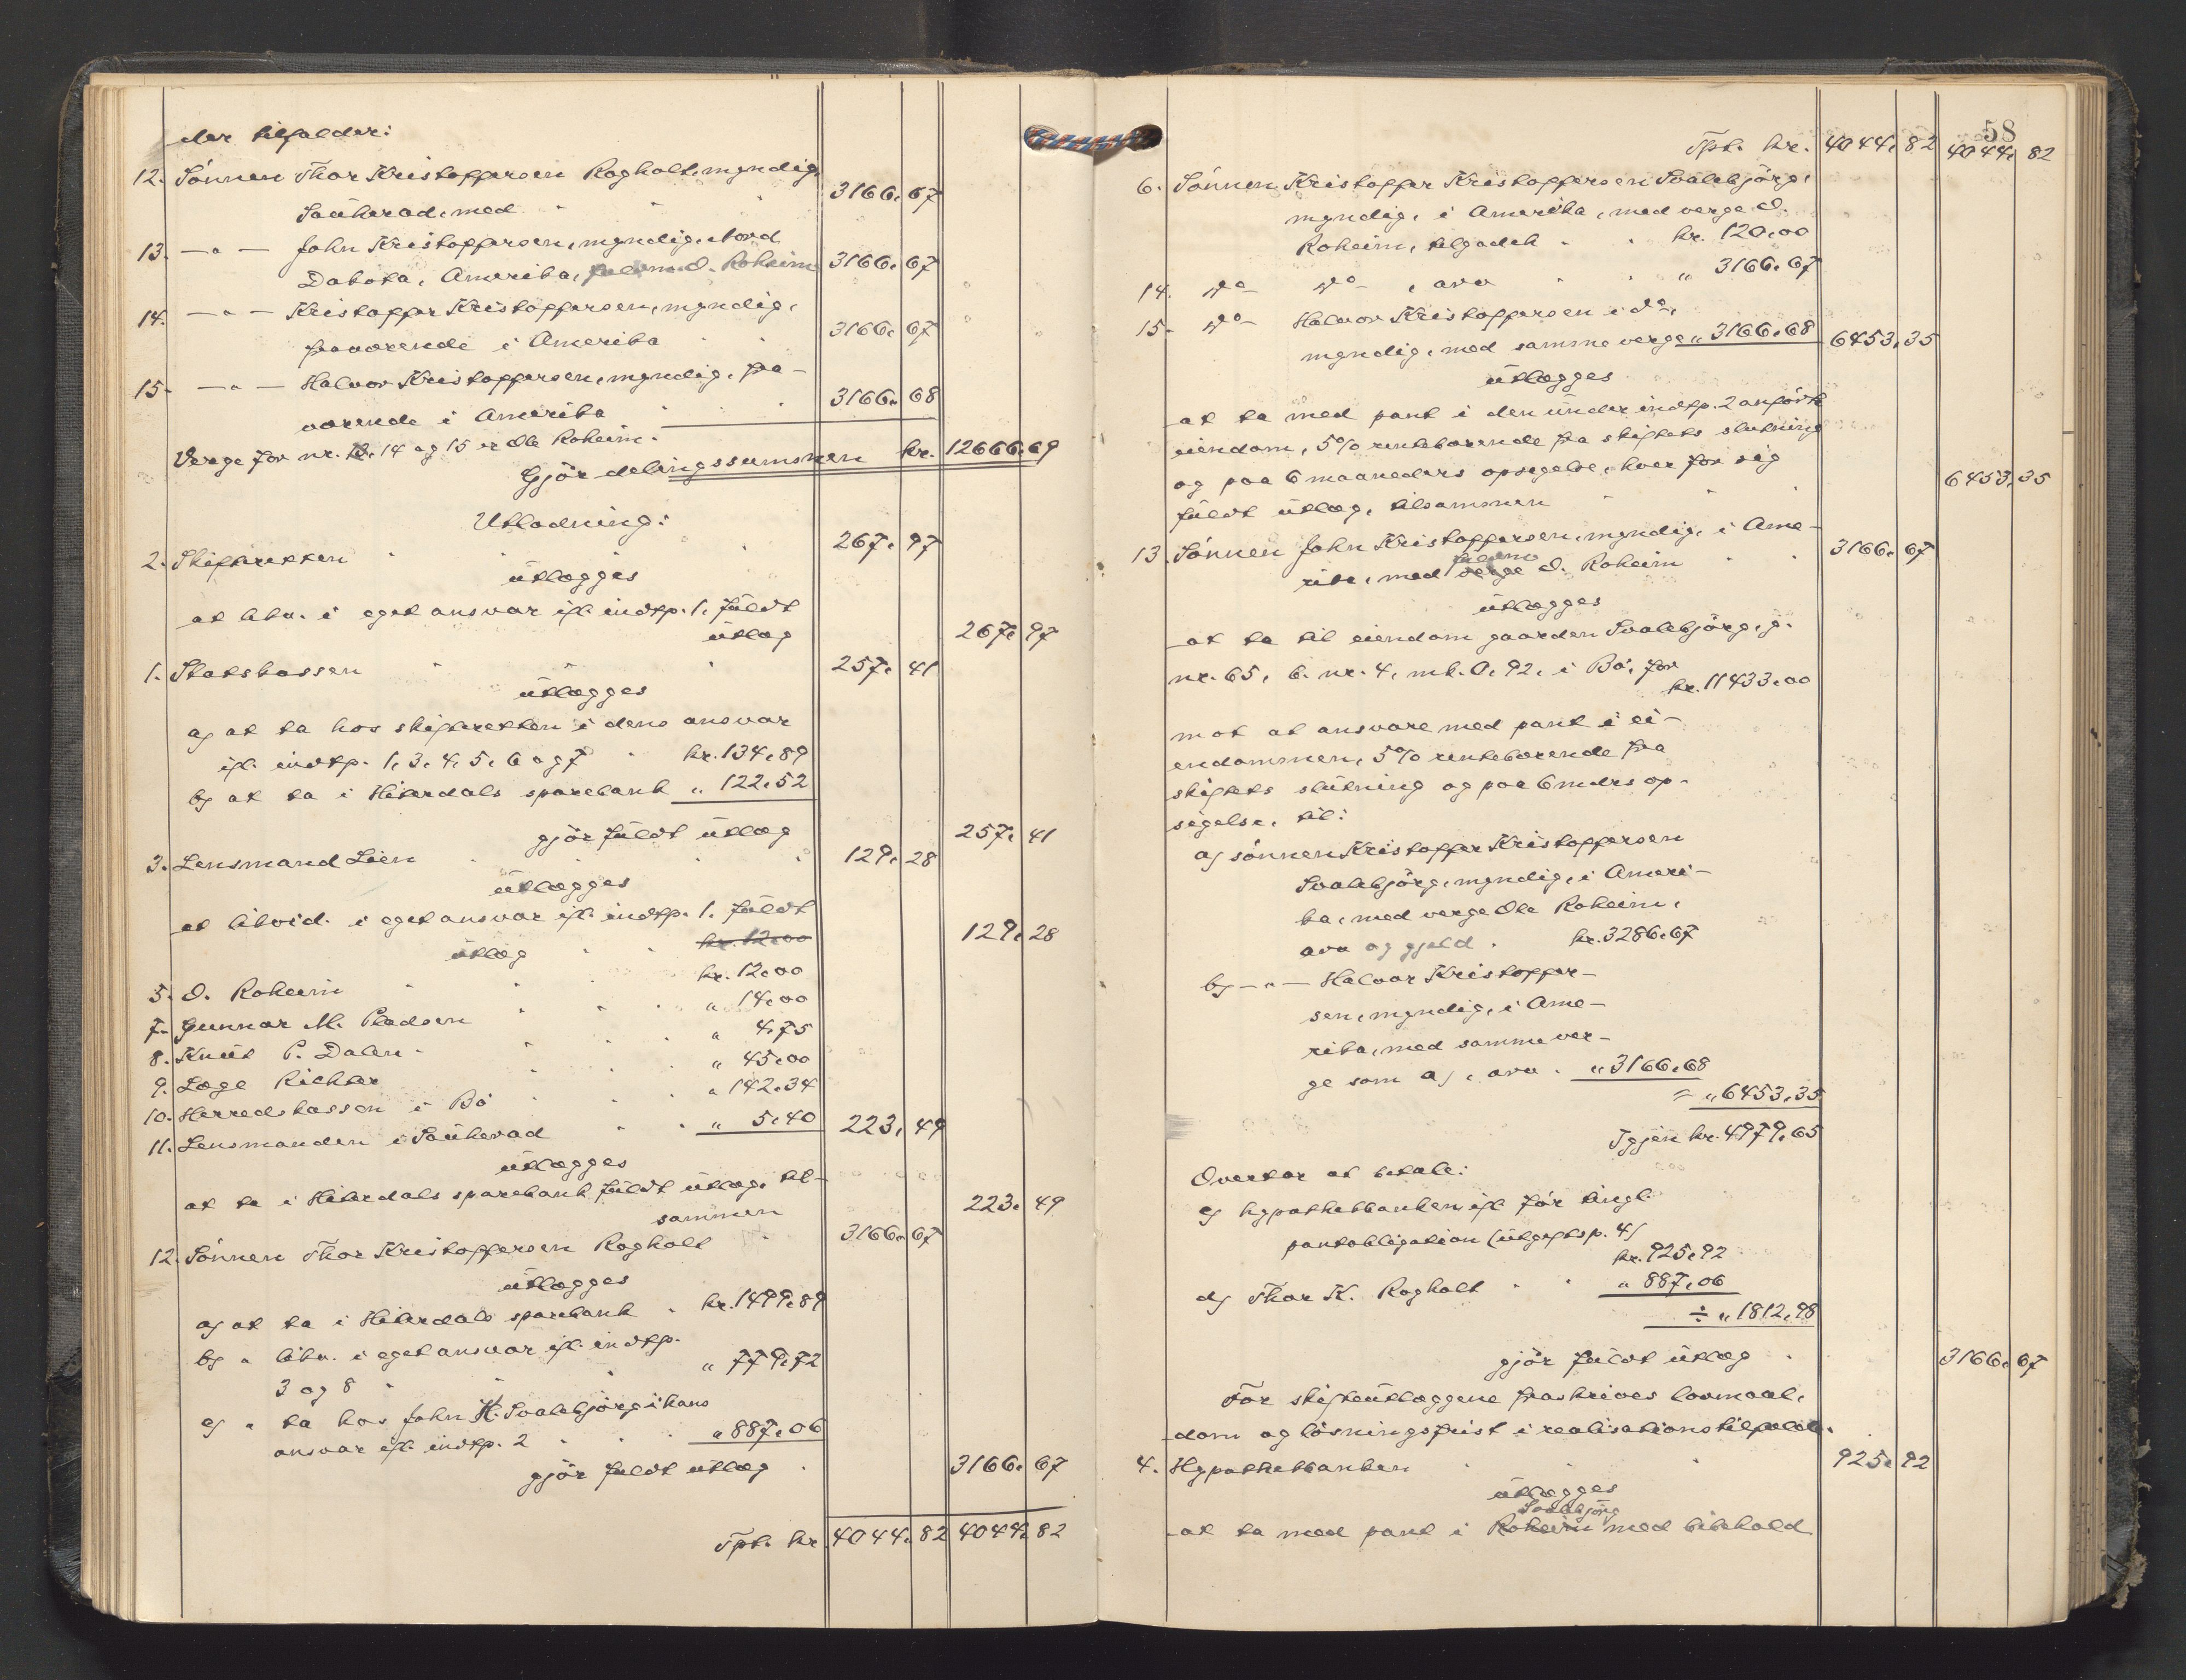 der tilfalder:
12. Sönnen Thor Kristoffersen Rogholt, myndig,
Sauherad, med 3166. 67
13. —"— John Kristoffersen, myndig, Nord
Dakota, Amerika, fuldm. O. Roheim 3166. 67
14. —"— Kristoffer Kristoffersen, myndig,
fraværende i Amerika 3166. 67
15. —"— Halvor Kristoffersen, myndig, fra-
værende i Amerika 3166. 68
Verge for nr. 14 og 15 er Ole Roheim.
Gjör delingssummen kr. 12666.69
Utlodning:
2. Skifteretten 267. 97
utlægges
at likv. i eget ansvar ifl. indtp. 1, fuldt
utlæg 267. 97
1. Statskassen 257. 41
utlægges
a) at ta hos skifteretten i dens ansvar
ifl. indtp. 1, 3, 4, 5, 6 og 7 kr. 134.89
b) at ta i Hiterdals sparebank " 122.52
gjör fuldt utlæg 257. 41
3. Lensmand Lien 129. 28
utlægges
at likvid. i eget ansvar ifl. indtp. 1. fuldt
utlæg kr. 12.00 129. 28
5. O. Roheim kr. 12.00
7. Gunnar M. Pladsen " 14.00
8. Knut P. Dalen " 4.75
9. Læge Richter " 45.00
10. Herredskassen i Bö " 142.34
11. Lensmanden i Sauherad " 5.40 223. 49
utlægges
at ta i Hiterdals sparebank fuldt utlæg, til-
sammen 223. 49
12. Sönnen Thor Kristoffersen Rogholt 3166. 67
utlægges
a) at ta i Hiterdals sparebank kr. 1499.89
b) " likv. i eget ansvar ifl. indtp.
3 og 8 " 779.72
c) " ta hos John K. Svalebjörg i hans
ansvar ifl. indtp. 2 " 887.06
gjör fuldt utlæg 3166. 67
Tpt. kr. 4044. 82 4044. 82
58
Tpt. kr. 4044. 82 4044. 82
6. Sönnen Kristoffer Kristoffersen Svalebjörg,
myndig, i Amerika, med verge O.
Roheim, tilgodeh. kr. 120.00
14. do do, arv " 3166.67
15. do Halvor Kristoffersen i do,
myndig, med samme verge " 3166.68 6453. 35
utlægges
at ta med pant i den under indtp. 2 anförte
eiendom, 5% rentebærende fra skiftets slutning
og paa 6 maaneders opsigelse, hver for sig
fuldt utlæg, tilsammen 6453. 35
13. Sönnen John Kristoffersen, myndig, i Ame-
rika, med fuldm. verge O. Roheim 3166. 67
utlægges
at ta til eiendom gaarden Svalebjörg, g.
nr. 65, b. nr. 4, mk. 0,92, i Bö, for
kr. 11433.00
mot at ansvare med pant i ei-
endommen, 5% rentebærende fra
skiftets slutning og paa 6 mdrs op-
sigelse, til:
a) sönnen Kristoffer Kristoffersen
Svalebjörg, myndig, i Ameri-
ka, med verge Ole Roheim,
arv og gjæld kr. 3286.67
b) —"— Halvor Kristoffer-
sen, myndig, i Ame-
rika, med samme ver-
ge som a), arv " 3166.68
= " 6453.35
Igjen kr. 4979.65
Overtar at betale:
c) hypothekbanken ifl. för tingl.
pantobligation (utgiftsp. 4)
kr. 925.92
d) Thor K. Rogholt " 887.06
÷ " 1812.98
gjör fuldt utlæg 3166. 67
For skifteutlæggene fraskrives lovmaal,
dom og lösningsfrist i realisationstilfælde.
4. Hypothekbanken 925. 92
utlægges
Svalebjörg
at ta med pant i Roheim med bibehold